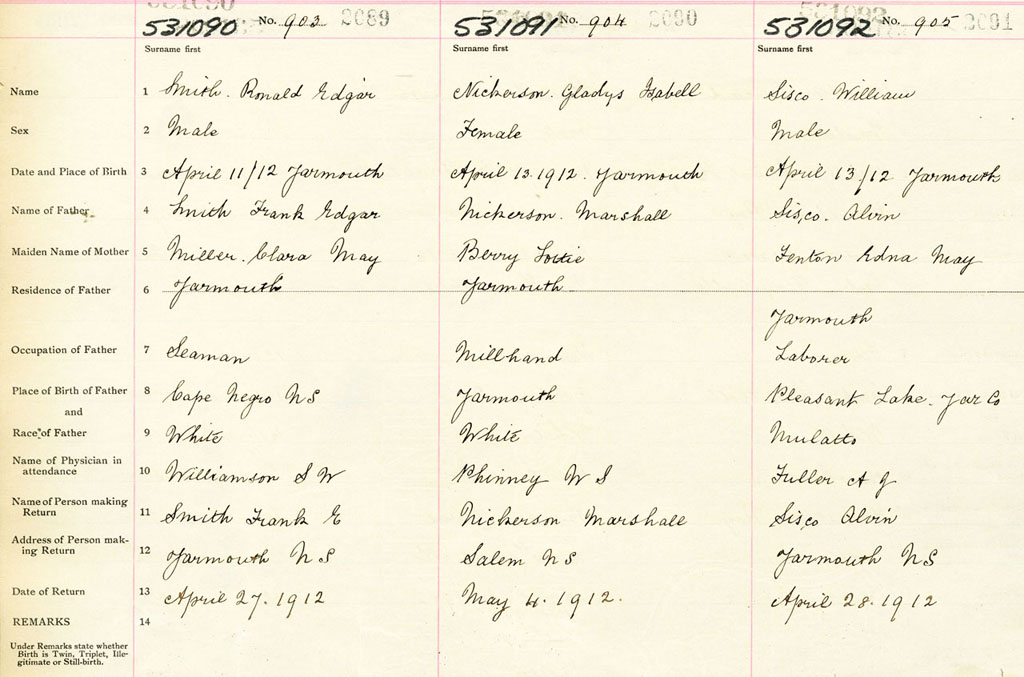 531090 No. 903 2089 531091 No. 904 2090 531092 No. 905 2091
Surname first Surname first Surname first
Name 1 Smith. Ronald Edgar Nickerson. Gladys Isabell Sisco. William
Sex 2 Male Female Male
Date and Place of Birth 3 April 11/12 Yarmouth April 13. 1912. Yarmouth April 13/12 Yarmouth
Name of Father 4 Smith Frank Edgar Nickerson. Marshall Sisco. Alvin
Maiden Name of Mother 5 Miller. Clara May Berry Lottie Fenton Edna May
Residence of Father 6 Yarmouth Yarmouth
Yarmouth
Occupation of Father 7 Seaman Millhand Laborer
Place of Birth of Father 8 Cape Negro NS Yarmouth Pleasant Lake. Yar Co
and
Race of Father 9 White White Mulatto
Name of Physician in
attendance 10 Williamson S W Phinney W S Fuller A J
Name of Person making
Return 11 Smith Frank E Nickerson Marshall Sisco Alvin
Address of Person mak-
ing Return 12 Yarmouth NS Salem NS Yarmouth NS
Date of Return 13 April 27. 1912 May 4. 1912. April 28. 1912
REMARKS 14
Under Remarks state whether
Birth is Twin, Triplet, Ille-
gitimate or Still-birth.